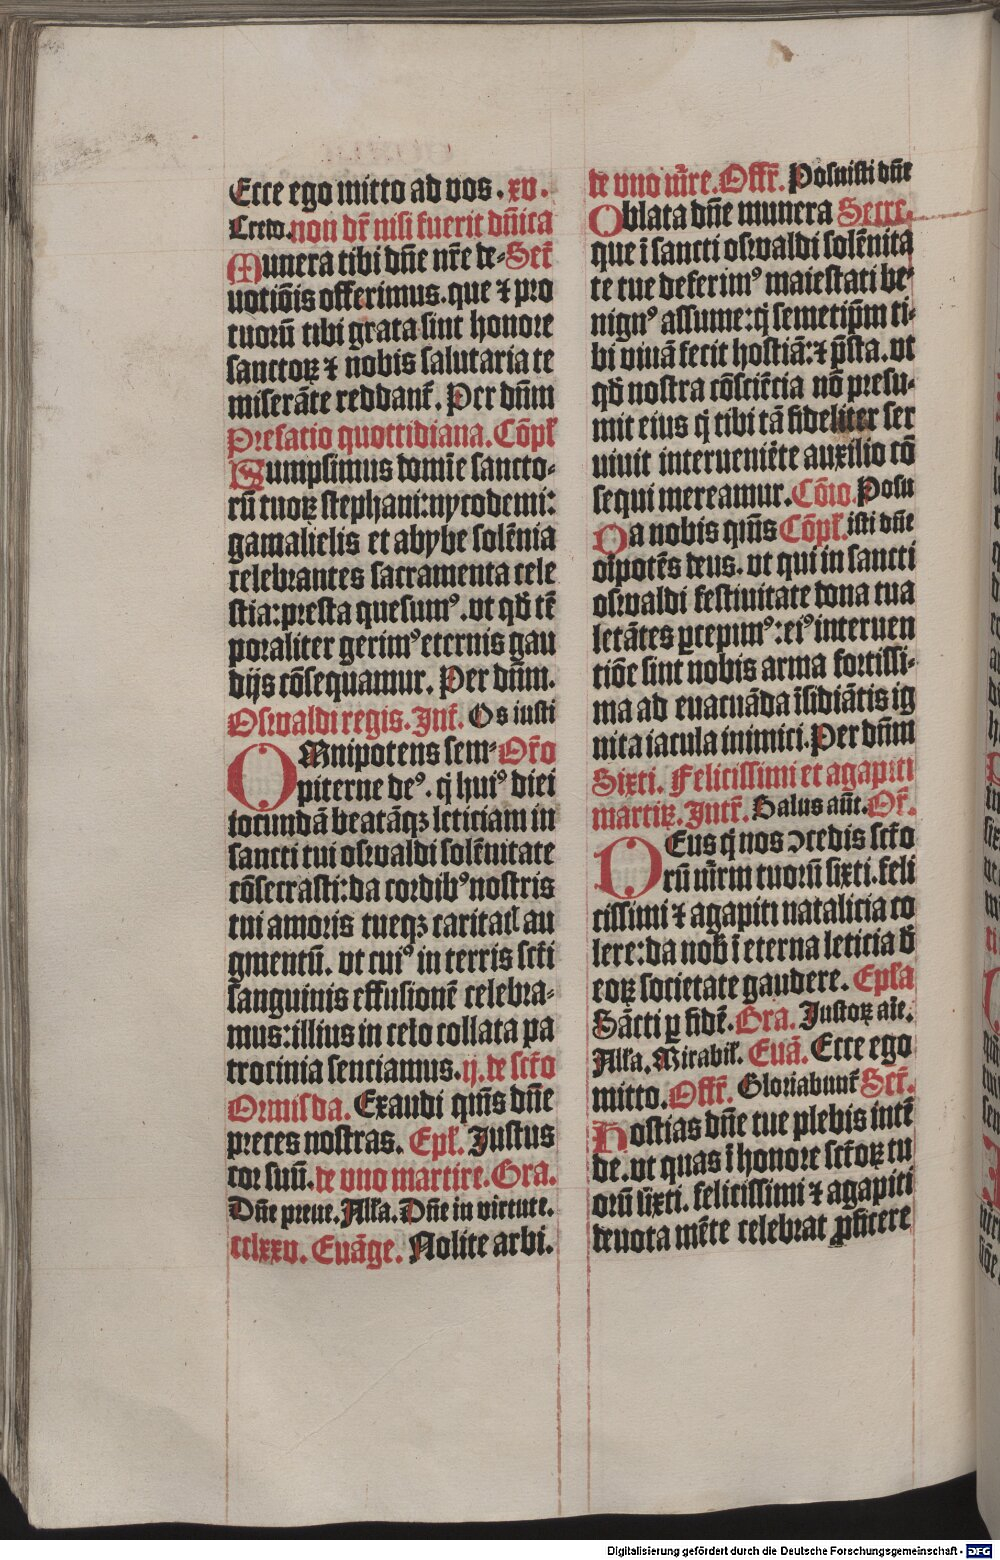 Ecce ego mitto ad vos . xv .
Credo. non dr̄ nisi fuerit dn̄ica
Munera tibi dn̄e nr̄e de⸗ Secr̄
uotiōis offerimus. que ⁊ pro
tuorū tibi grata sint honore
sanctoꝝ ⁊ nobis salutaria te
miserāte reddant̄. Per dn̄m
Prefatio quottidiana. Cōpl̄
Sumpsimus domīe sancto⸗
rū tuoꝝ stephani: nycodemi:
gamalielis et abybe solēnia
celebrantes sacramenta cele
stia: presta quesumꝰ. vt qd̄ tē
poraliter gerimꝰ eternis gau
dijs cōsequamur. Per dn̄m.
Oswaldi regis. Int̄. Os iusti
OMnipotens sem⸗ Or̄o
piterne deꝰ. q̄ huiꝰ diei
iocundā beatāqꝫ leticiam in
sancti tui oswaldi solēnitate
cōsecrasti: da cordibꝰ nostris
tui amoris tueqꝫ caritatꝭ au
gmentū. vt cuiꝰ in terris sct̄i
sanguinis effusionē celebra⸗
mus: illius in celo collata pa
trocinia sentiamus. ij. de sct̄o
Ormisda. Exaudi qm̄s dn̄e
preces nostras. Epl̄. Iustus
cor suū. de vno martire. Gra.
Dn̄e preue. Alla. Dn̄e in virtute.
cclxxv. Euāge. Nolite arbi.
de vno mr̄e. Offr̄. Posuisti dn̄e
Oblata dn̄e munera Secre.
que ī sancti oswaldi solēnita
te tue deferimꝰ maiestati be⸗
nignꝰ assume: q̄ semetip̄m ti⸗
bi viuā fecit hostiā: ⁊ p̄sta. vt
qd̄ nostra cōsciētia nō presu⸗
mit eius q̄ tibi tā fideliter ser
uiuit interueniēte auxilio cō
sequi mereamur. Cōio. Posu
Da nobis qm̄s Cōpl̄. isti dn̄e
oīpotēs deus. vt qui in sancti
oswaldi festiuitate dona tua
letātes ꝑcepimꝰ: eiꝰ interuen
tiōe sint nobis arma fortissi⸗
ma ad euacuāda īsidiātis ig
nita iacula inimici. Per dn̄m
Sixti. Felicissimi et agapiti
martiꝝ. Intr̄. Salus aūt. Or̄.
DEus q̄ nos ↄcedis sct̄o
rū mr̄m tuorū sixti. feli
cissimi ⁊ agapiti natalicia co
lere: da nob̄ ī eterna leticia d̄
eoꝝ societate gaudere. Epl̄a
Sācti ꝑ fidē. Gra. Iustoꝝ aīe.
Alla. Mirabil̄. Euā. Ecce ego
mitto. Offr̄. Gloriabunt̄ Secr̄.
Hostias dn̄e tue plebis intē
de. vt quas ī honore sct̄oꝝ tu
orū sixti. felicissimi ⁊ agapiti
deuota mēte celebrat ꝓficere
Digitalisierung gefördert durch die Deutsche Forschungsgemeinschaft - DFG